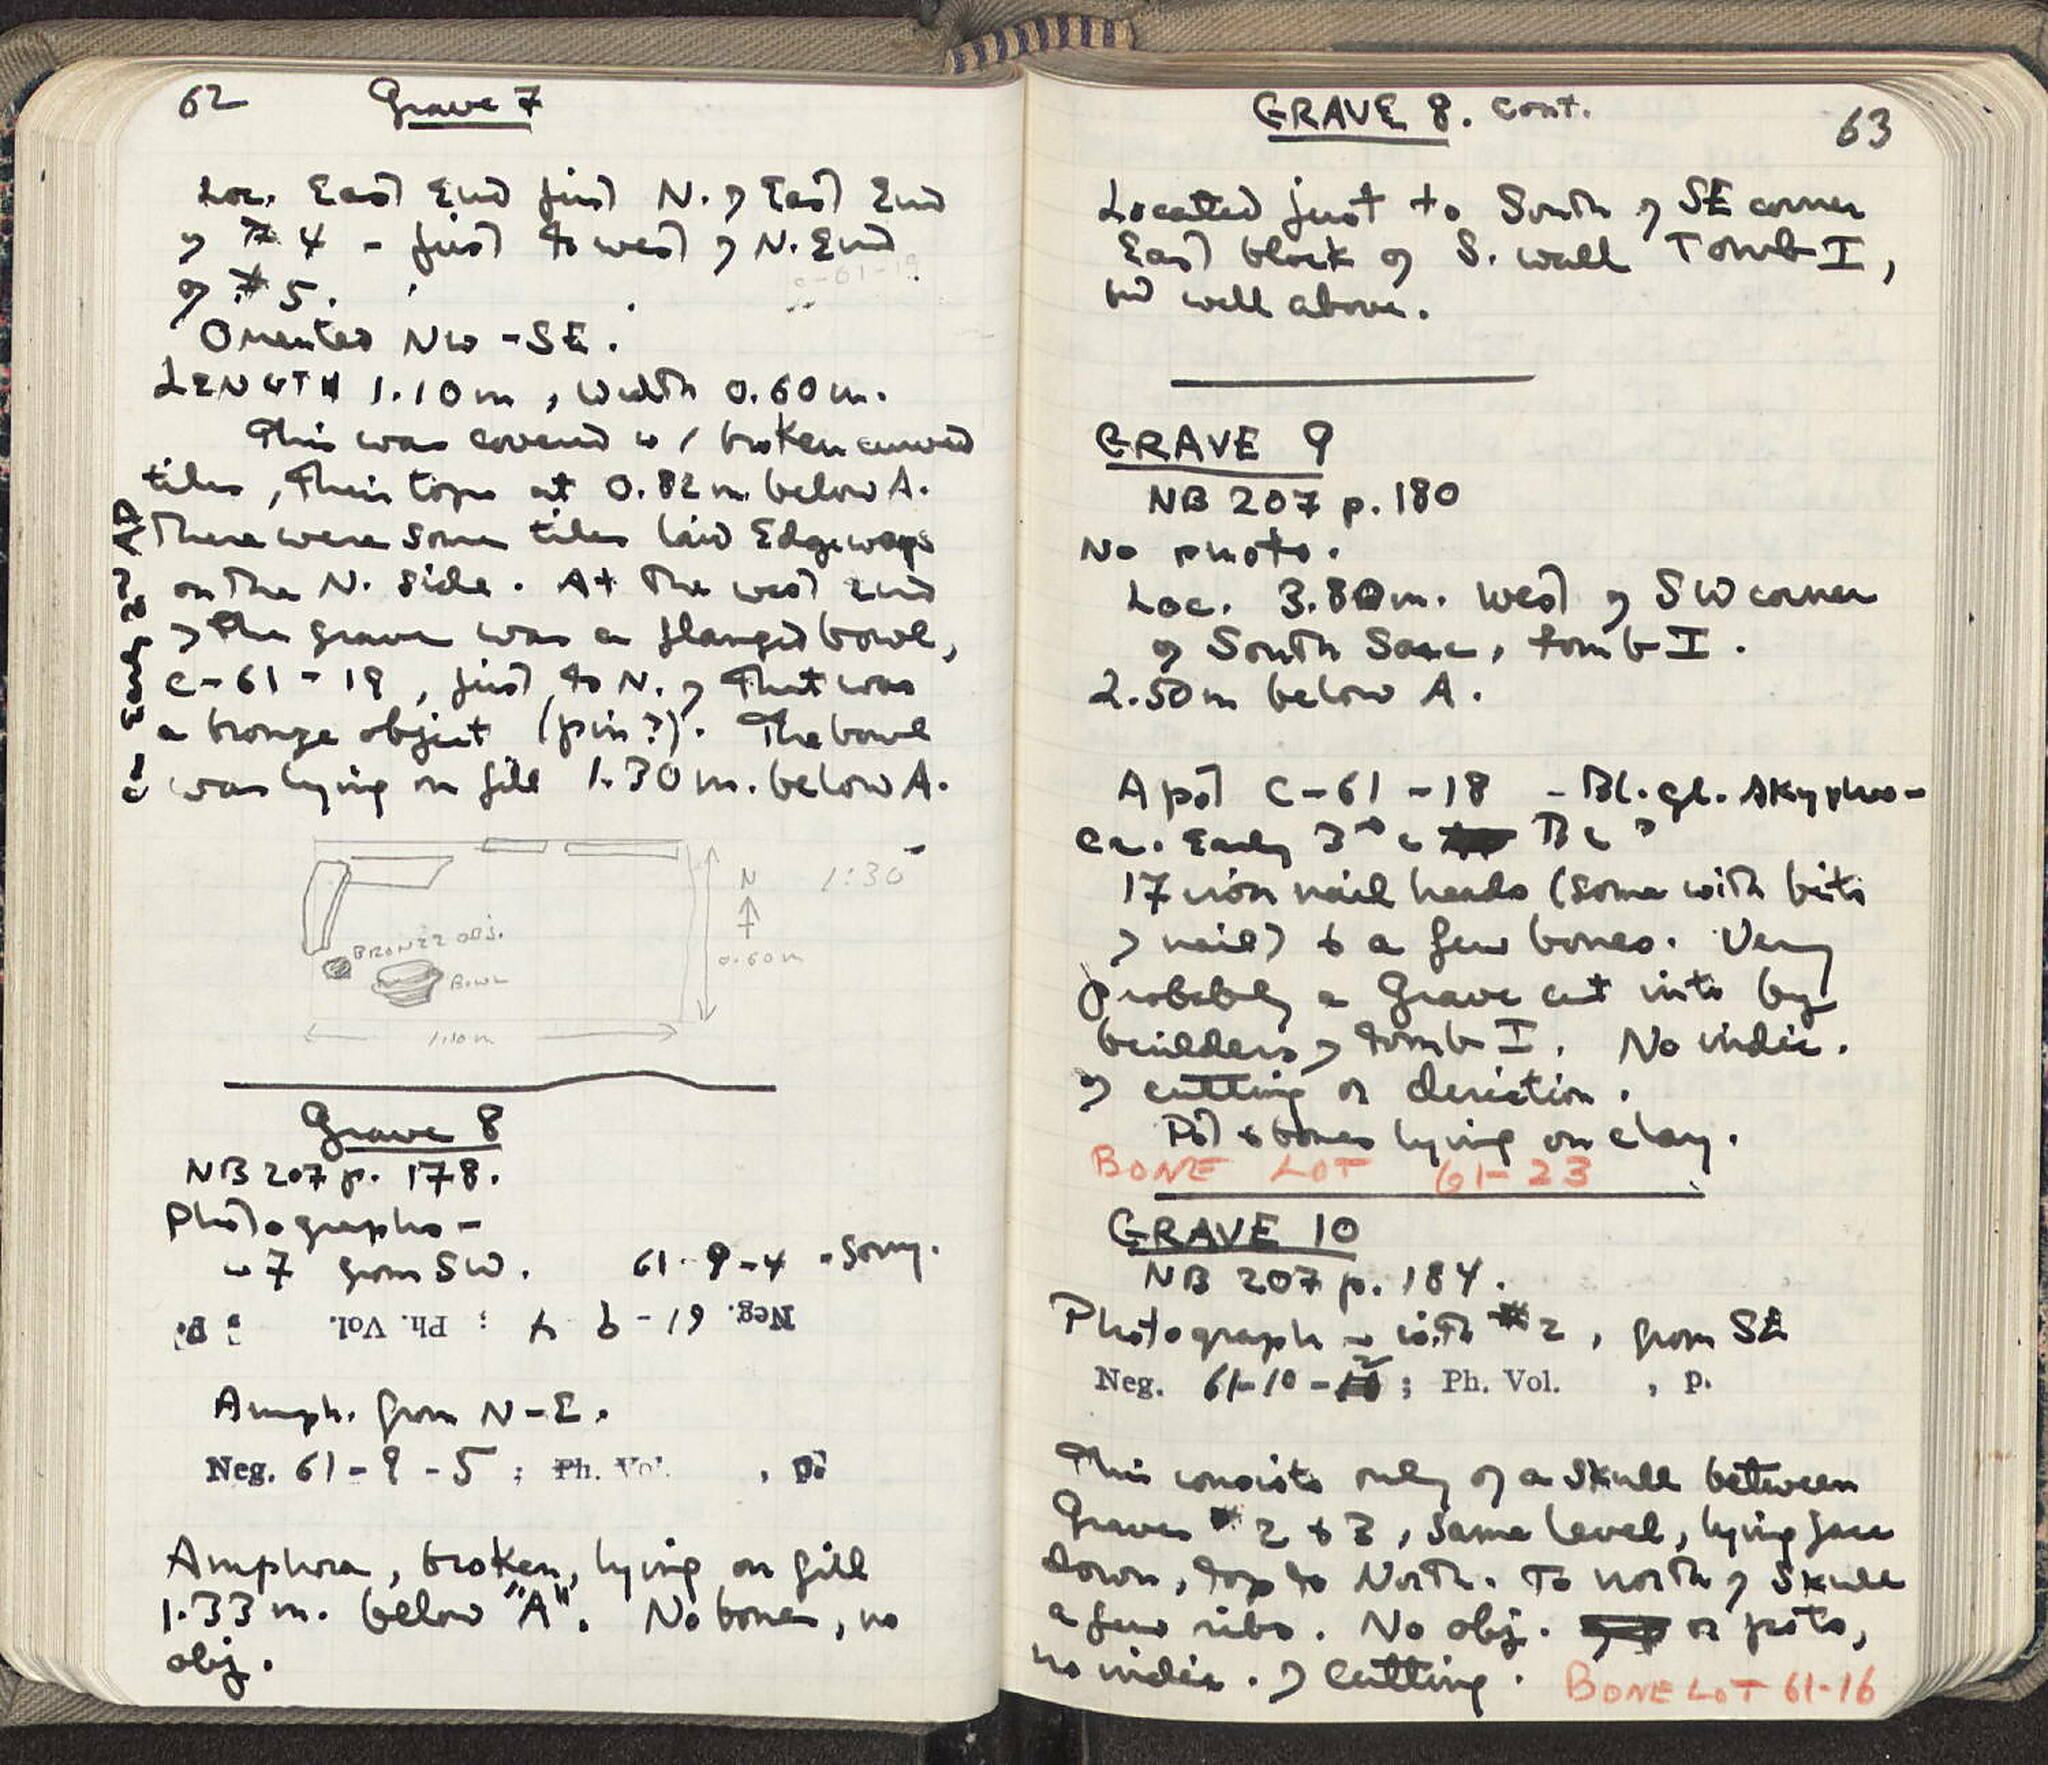 62 Grave 7
Loc. East End just N. of East End
of # 4 - just to west of N. End
of # 5.
C-61-19
Oriented NW - SE.
LENGTH 1.10 m, width 0.60 m.
This was covered w/ broken curved
tiles, their tops at 0.82 m. below A.
There were some tiles laid Edgeways
on the N. side. At the west end
of the grave was a flanged bowl,
C-61-19, just to N. of that was
a bronze object (pin?). The bowl
was lying on fill 1.30 m. below A.
ca. Early 2nd AD
1:30
N
BRONZE OBJ.
BOWL
0.60 m
1.10 m
Grave 8
NB 207 p. 178.
Photographs -
w 7 from SW. 61-9-4 - Sorry.
Neg. 61-9 4 ; Ph. Vol. , p.
Amph. from N-E.
Neg. 61-9-5 ; Ph. Vol. , p.
Amphora, broken, lying on fill
1.33 m. below "A". No bones, no
obj.
GRAVE 8. cont. 63
Located just to South of SE corner
East block of S. wall Tomb I,
but well above.
GRAVE 9
NB 207 p. 180
No photo.
Loc. 3.80 m. West of SW corner
of South Sarc, tomb I.
2.50 m below A.
A pot C-61-18 - Bl. gl. skyphos -
Ca. Early 3rd c BC ?
17 iron nail heads (some with bits
of nail) & a few bones. Very
probably a Grave cut into by
builders of tomb I. No indic.
of cutting or direction.
Pot & bones lying on clay.
BONE LOT 61-23
GRAVE 10
NB 207 p. 184.
Photograph - with # 2, from SE
Neg. 61-10-2 ; Ph. Vol. , p.
This consists only of a skull between
Graves # 2 & 3, same level, lying face
down, top to North. To north of skull
a few ribs. No obj. or pots,
no indic. of cutting. BONE LOT 61-16